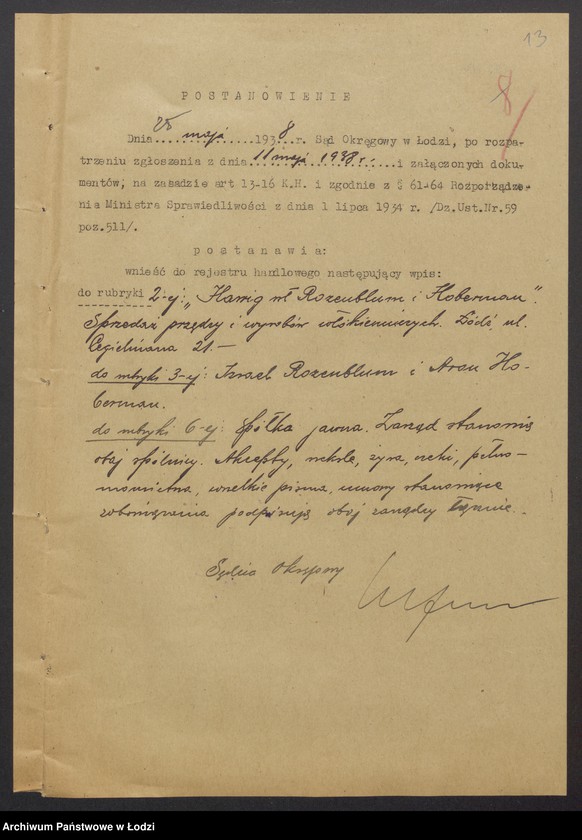 13
8
POSTANOWIENIE
Dnia 25 maja 1938 r. Sąd Okręgowy w Łodzi, po rozpa-
trzeniu zgłoszenia z dnia 11 maja 1938 r. i załączonych doku-
mentów, na zasadzie art 13-16 K.H. i zgodnie z § 61-64 Rozporządze-
nia Ministra Sprawiedliwości z dnia 1 lipca 1934 r. /Dz.Ust.Nr.59
poz.511/.
postanawia:
wnieść do rejestru handlowego następujący wpis:
do rubryki 2-ej: „ wł Rozenblum i Hoberman".
Sprzedaż przędzy i wyrobów włókienniczych. Łódź, ul.
Cegielniana 21.—
do rubryki 3-ej: Izrael Rozenblum i Aron Ho-
berman.
do rubryki 6-ej: Spółka jawna. Zarząd stanowią
obaj spólnicy. Akcepty, weksle, żyra, czeki, pełno-
mocnictwa, wszelkie pisma, umowy stanowiące
zobowiązania podpisują obaj zarządcy łącznie.
Sędzia Okręgowy
Archiwum Państwowe w Łodzi